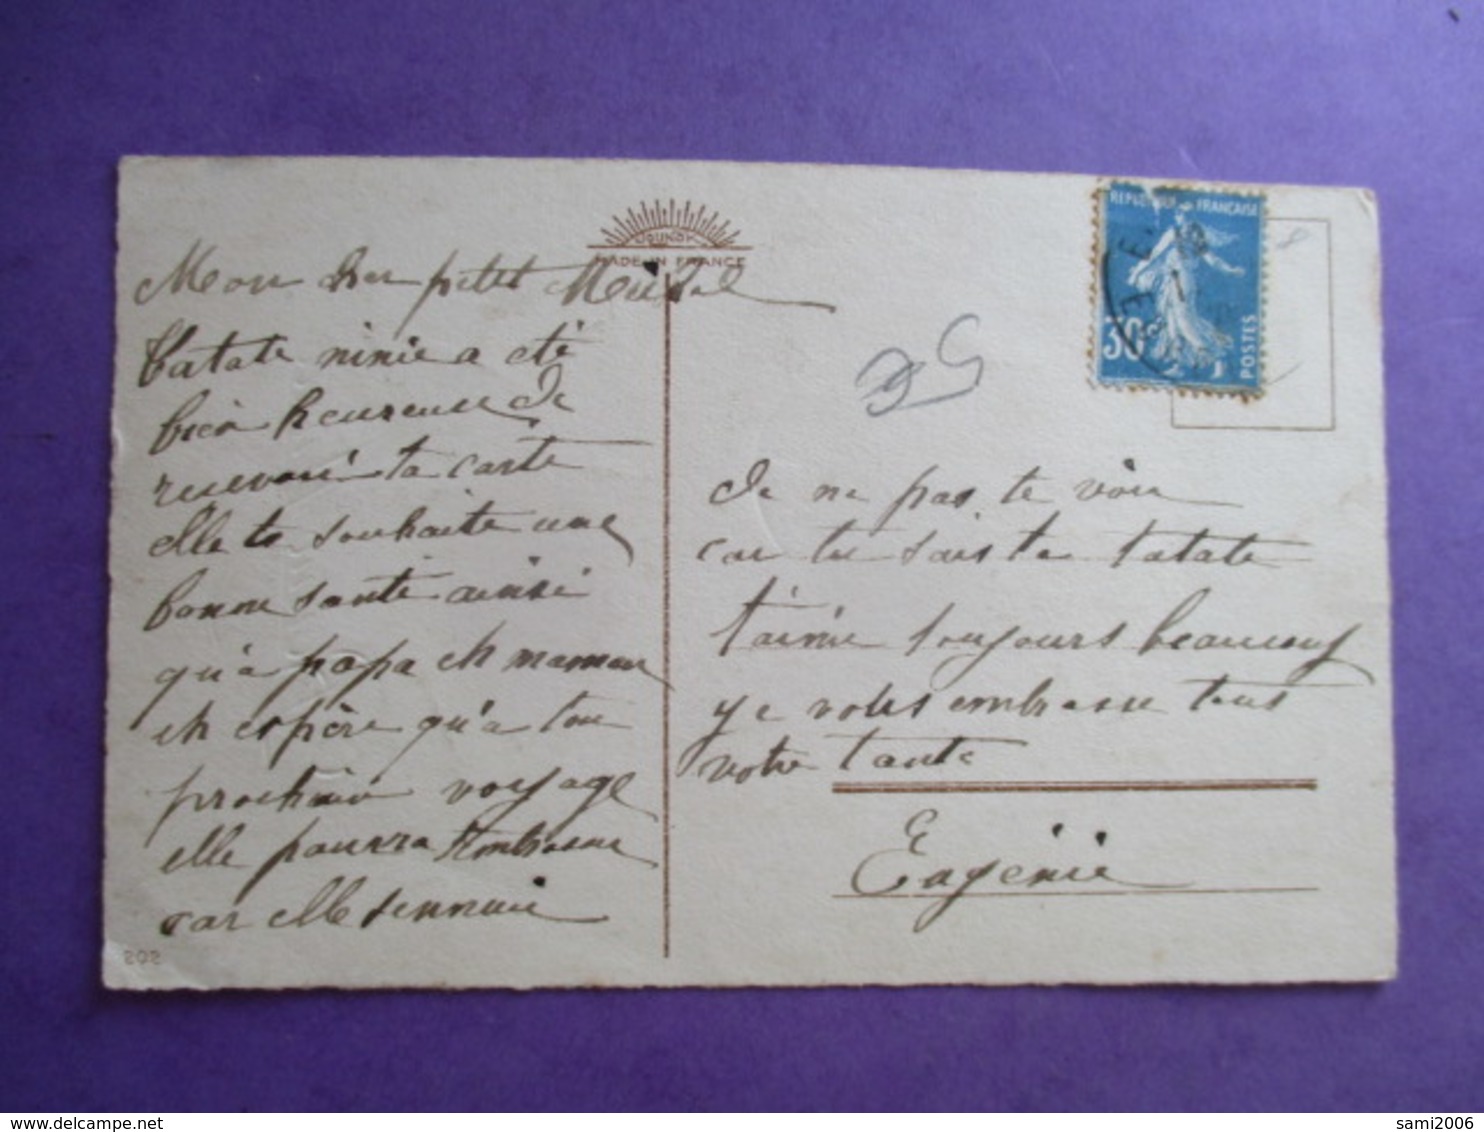 DOUNOY
MADE IN FRANCE
Mon cher petit
tatate ninie a été
bien heureuse de
resevoir ta carte
elle te souhaite une
bonne santé ainsi
qu'à papa et maman
et espère qu'a ton
prochain voyage
elle pourra t'embrasse
car elle sennuie
202
REPUBLIQUE FRANÇAISE
30
POSTES
de ne pas te voir
car tu sais ta tatate
t'aime toujours beaucoup
ye vous embrasse tous
votre tante
Eugénie
delcampe.net
sami2006